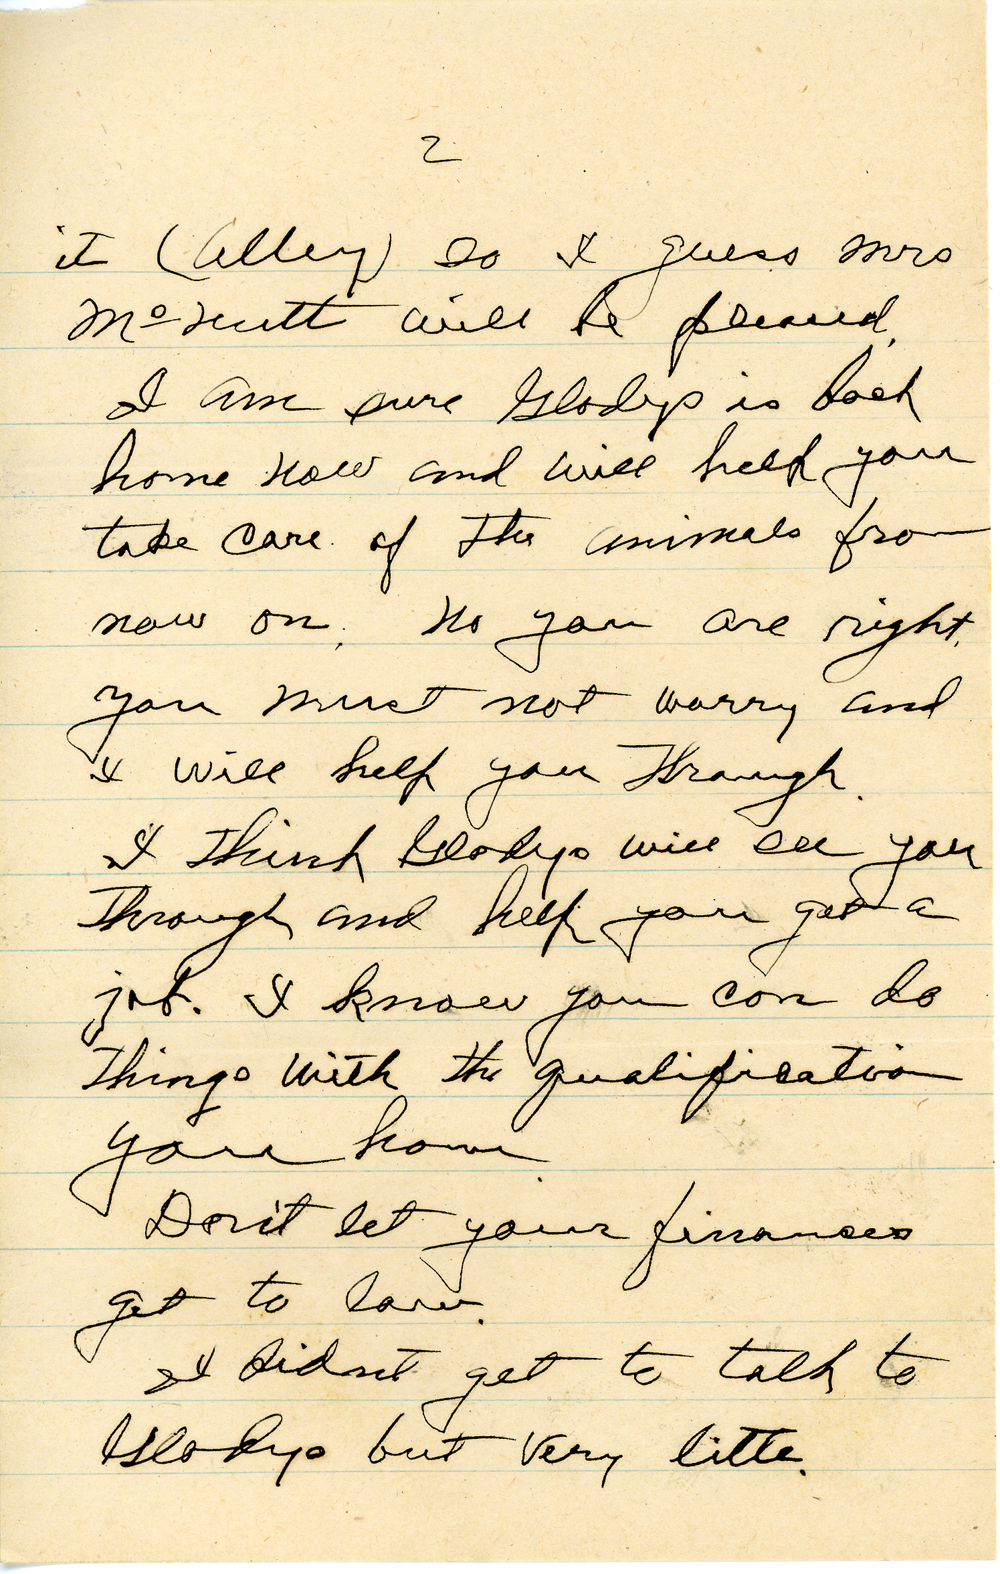 2
it (Alley) so I guess Mrs
McNutt will be pleased.
I am sure Gladys is back
home now and will help you
take care of the animals from
now on. No you are right,
you must not worry and
I will help you through.
I think Gladys will see you
through and help you get a
job. I know you can do
things with the qualification
you have
Don't let your finances
get to low.
I didn't get to talk to
Gladys but very litte.